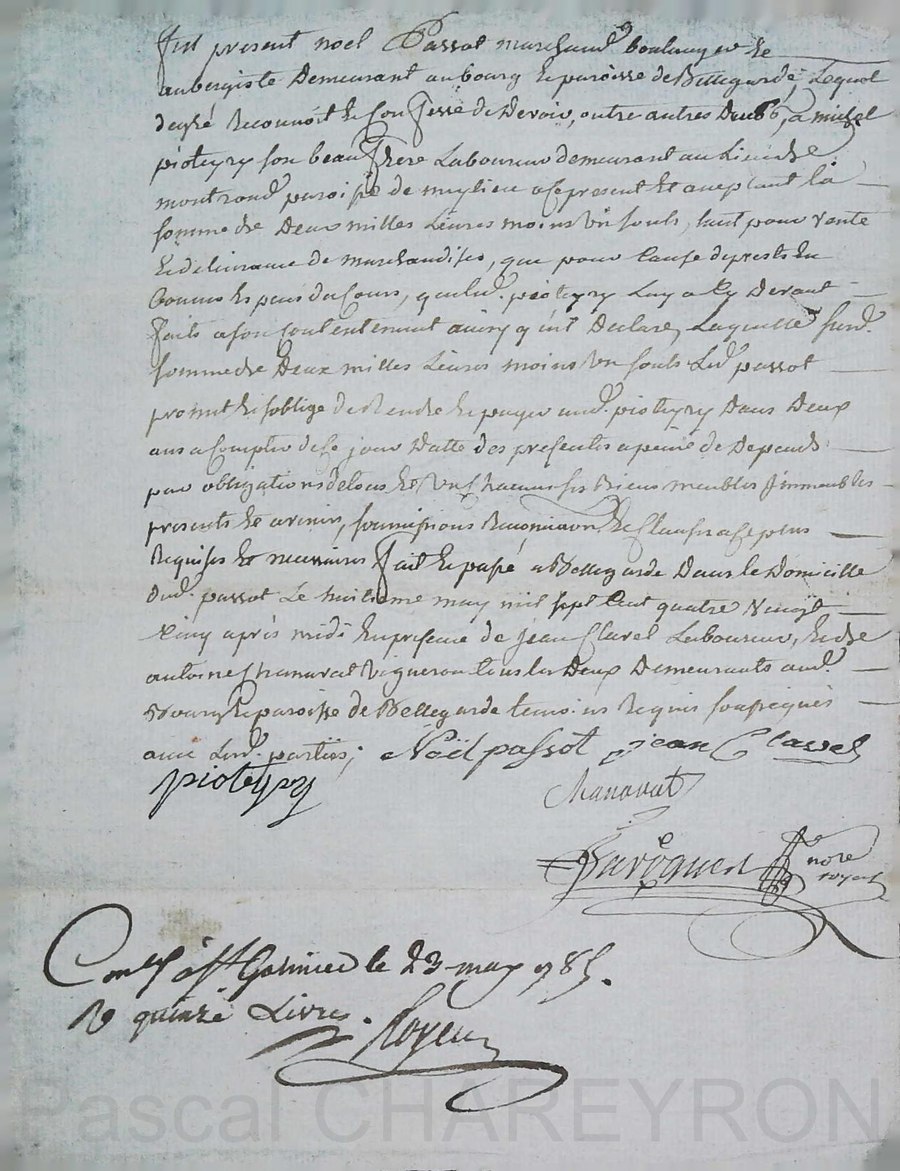 fut present noel Passot marchand boulanger et
aubergiste Demeurant au bourg et paroisse de Bellegarde, Lequel
de gré Reconnoit et Confesse de Devoir, outre autres Dus, a michel
pioteyry son beau frere Laboureur demeurant au de
montrond paroisse de meylieu a ce present et acceptant la
somme de Deux milles Livres moins un souls, tant pour vente
et delivrance de marchandises, que pour Cause de prests en
bonnes especes du Cours, que led. pioteyry Luy a Cy Devant
faits a son Contentement ainsy qu'il Declare, Laquelle susd.
somme de Deux milles Livres moins un souls Led. passot
promet et s'oblige de Rendre et payer aud. pioteyry Dans Deux
ans a Compter de Ce jour Datte des presentes a peine de Depends
par obligations de tous et Uns Chacuns ses Biens meubles & immeubles
presents et avenir, soumissions Renonciation et Clauses a Ce plus
Requises et necessaires fait et passé a Bellegarde Dans le Domicille
Dud. passot Le huitieme may mil sept Cent quatre Vingt
Cinq après midi En presence de jean Clavel Laboureur, et de
antoine Chanavat Vigneron tous les Deux Demeurants aud.
Bourg et paroisse de Bellegarde temoins Requis soussignés
avec Lesd. parties;   Noël passot   jean Clavel
pioteyry
Chanavat
nore
royal
Con.lé à St Galmier le 23 may 1785.
R quinze Livres.
Pascal CHAREYRON